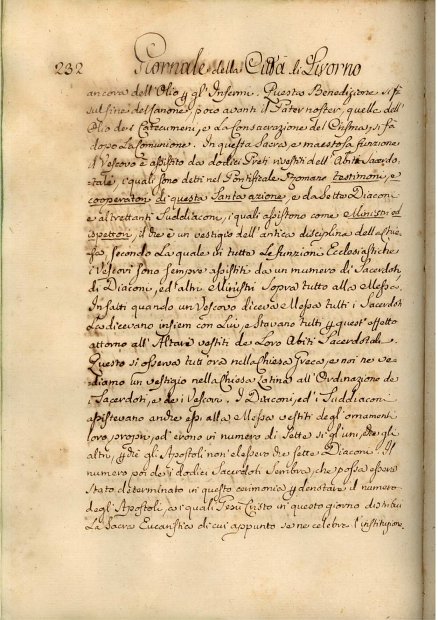 232 Giornale della Città di Livorno
ancora dell'Olio p gl'Infermi. Questa Benedizione si fà
sul fine del Canone, poco avanti il Pater noster, quelle dell'
Olio de i Catecumeni, e La Consacrazione del Crisma, si fà
dopo La Comunione. In questa Sacra, e maestosa funzione
il Vescovo è assistito da dodici Preti vestiti dell'Abito Sacerdo-
tale, i quali sono detti nel Pontificale Romano testimoni, e
cooperatori di questa Santa azione, e da Sette Diaconi
e altrettanti Suddiaconi, i quali assistono come Ministri ed
ispettori, il che è un vestigio dell'antica disciplina della Chie-
sa, secondo La quale in tutte Le funzioni Ecclesiastiche
i Vescovi sono sempre assistiti da un numero di Sacerdoti,
di Diaconi, ed'altri Ministri Sopra tutto alla Messa.
Infatti quando un Vescovo diceva Messa tutti i Sacerdoti
La dicevano insiem con Lui, e Stavano tutti p quest'effetto
attorno all'Altare vestiti de Loro Abiti Sacerdotali.
Questo si osserva tutt'ora nella Chiesa Greca, e noi ne ve-
diamo un vestigio nella Chiesa Latina all'Ordinazione de
i Sacerdoti, e de i Vescovi. I Diaconi, ed'i Suddiaconi
assistevano anche essi alla Messa vestiti degl'ornamenti
loro proprj, ed'erono in numero di Sette sì gl'uni, che gli
altri, p che gli Apostoli non elessero che sette Diaconi. Il
numero poi de i dodici Sacerdoti Sembra, che possa essere
Stato determinato in questa cerimonia p denotare il numero
degl'Apostoli, a i quali Gesù Cristo in questo giorno distribuì
La Sacra Eucaristia di cui appunto se ne celebra l'instituzione.